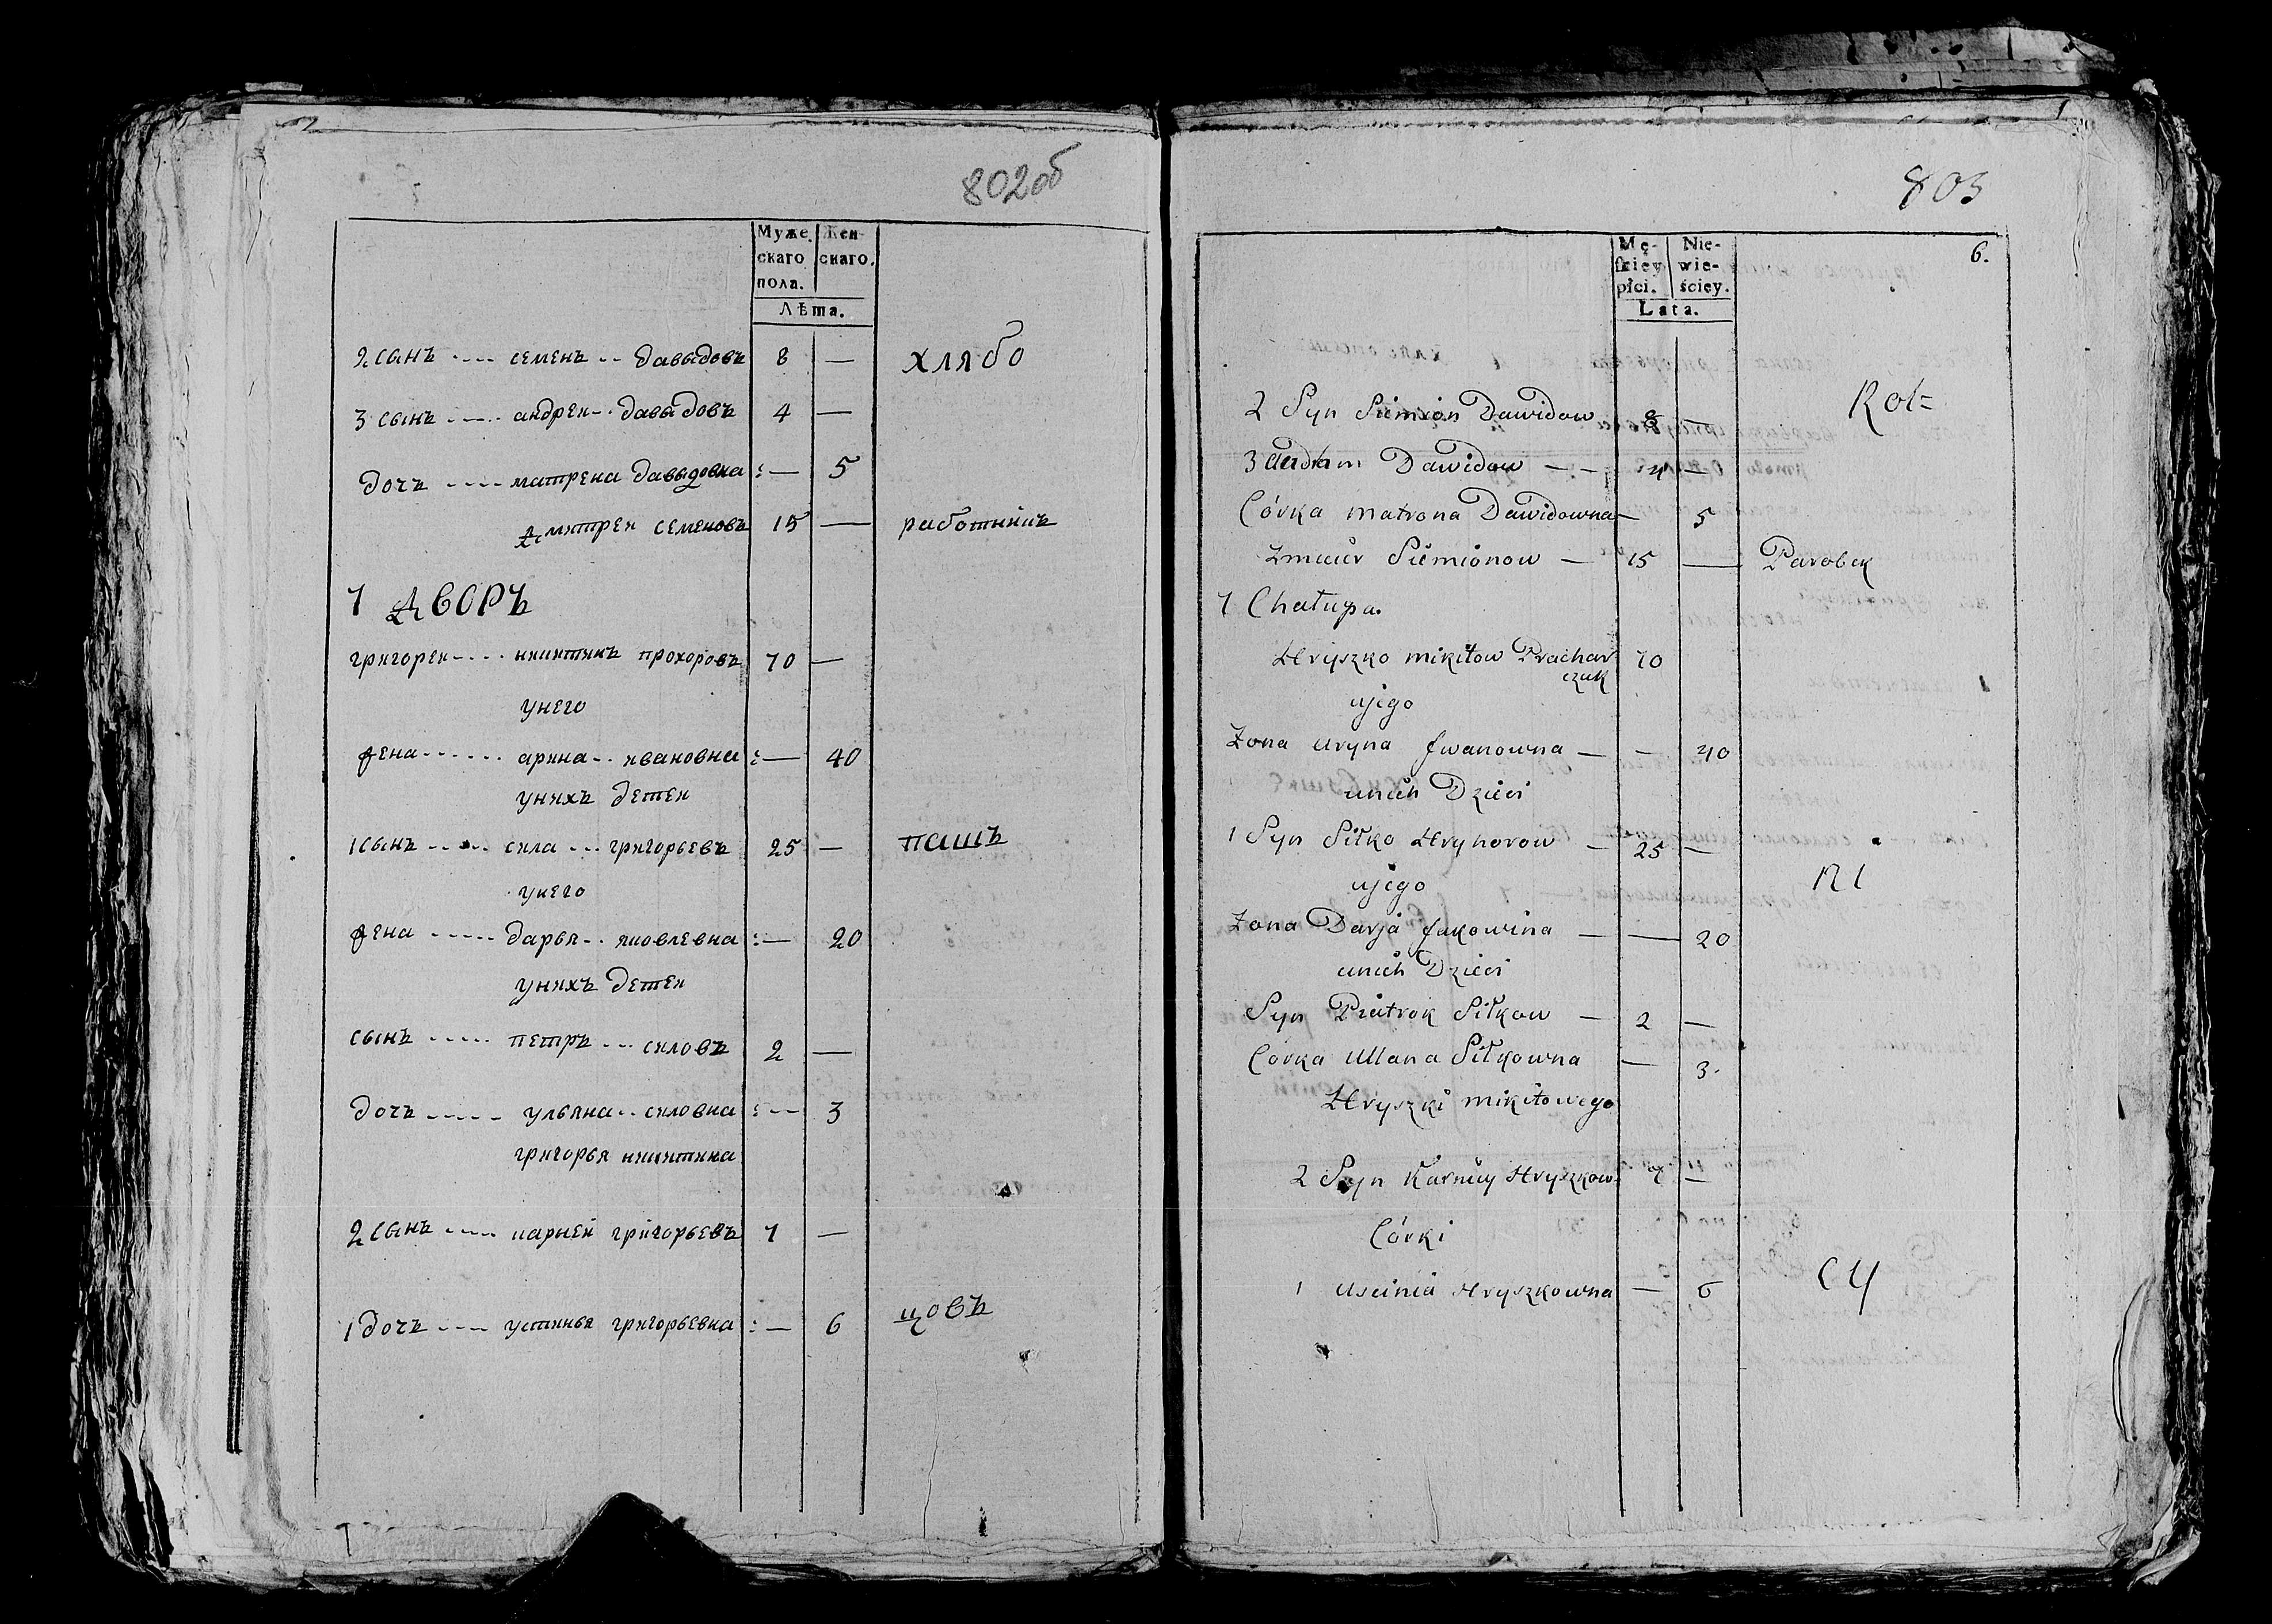 802об
Муже Жен-
скаго скаго.
пола.
Лѣта.
2 сынъ семенъ давыдовъ 8 — хлябо
3 сынъ андреи давыдовъ 4 —
дочь матрена давыдовна — 5
дмитреи семеновъ 15 — работникъ
7 дворъ
григореи никитинъ прохоровъ 70 —
унего
жена арина ивановна — 40
унихъ детеи
1 сынъ сила григорьевъ 25 — пашъ
унего
жена дарья яковлевна — 20
унихъ детеи
сынъ петръ силовъ 2 —
дочь ульяна силовна — 3
григорья никитина
2 сынъ карнеи григорьевъ 7 —
1 дочь устинья григорьевна — 6 цовъ
803
6.
Mę- Nie-
ſkiey wie-
płci. ściey.
Lata.
2 Syn Siemion Dawidow 8 — Rol=
3 Dawidow — 4 —
Córka matrona Dawidowna — 5
Siemionow — 15 — Parobek
7 Chałupa.
Hryszko mikitow Prachar 70
czuk
ujego
Zona aryna Jwanowna — — 40
unich Dzieci
1 Syn Siłko Hryhorow — 25 — ni
ujego
Zona Darja Jakowina — — 20
unich Dzieci
Syn Piatrok Siłkow — 2 —
Córka Ullana Siłkowna — 3
Hryszki mikitowego
2 Syn Karniey Hryszkow 7 —
Córki
1 Uscinia Hryszkowna — 6 cy